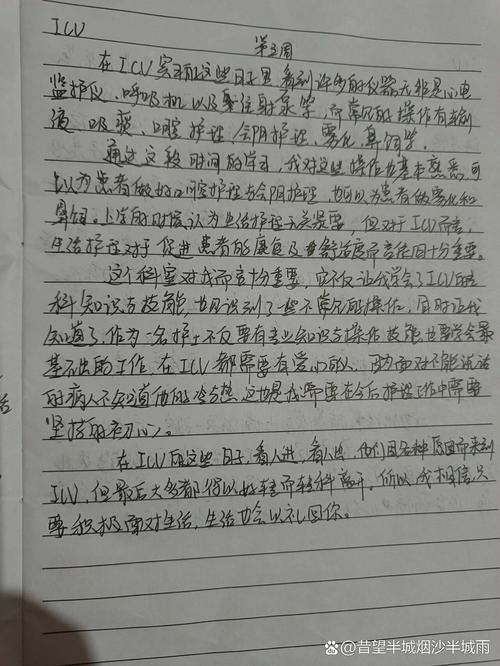 ICU
第三周
在ICU实习的这些日子里,看到许多的仪器,无非是心电
监护仪、呼吸机以及注射泵等,而常见的操作有输
液、吸痰、口腔护理、会阴护理、雾化、鼻饲等。
通过这段时间的学习,我对这些操作也基本熟悉,可
以为患者做好口腔护理与会阴护理,也可以为患者做雾化和
鼻饲。上学的时候认为生活护理无关紧要,但对于ICU而言,
生活护理对于促进患者的康复及舒适度而言徍同十分重要。
这个科室对我而言十分重要,它不仅让我学会了ICU的
科知识与技能,也见识到了一些不常见的操作,同时让我
知道了,作为一名护士不仅要有专业知识与操作技能,也要学会最
基础的工作,在ICU都需要有爱心的人,因为面对不能说话
的病人不知道他的冷与热,这也是我需要在今后护理工作中需要
坚持的初心。
在ICU的这些日子,看人进,看人出,他们因各种原因而来到
ICU,但最后大多都得以好转而转科离开。所以,我相信只
要积极面对生活,生活也会以礼回你。
百家号/昔望半城烟沙半城雨